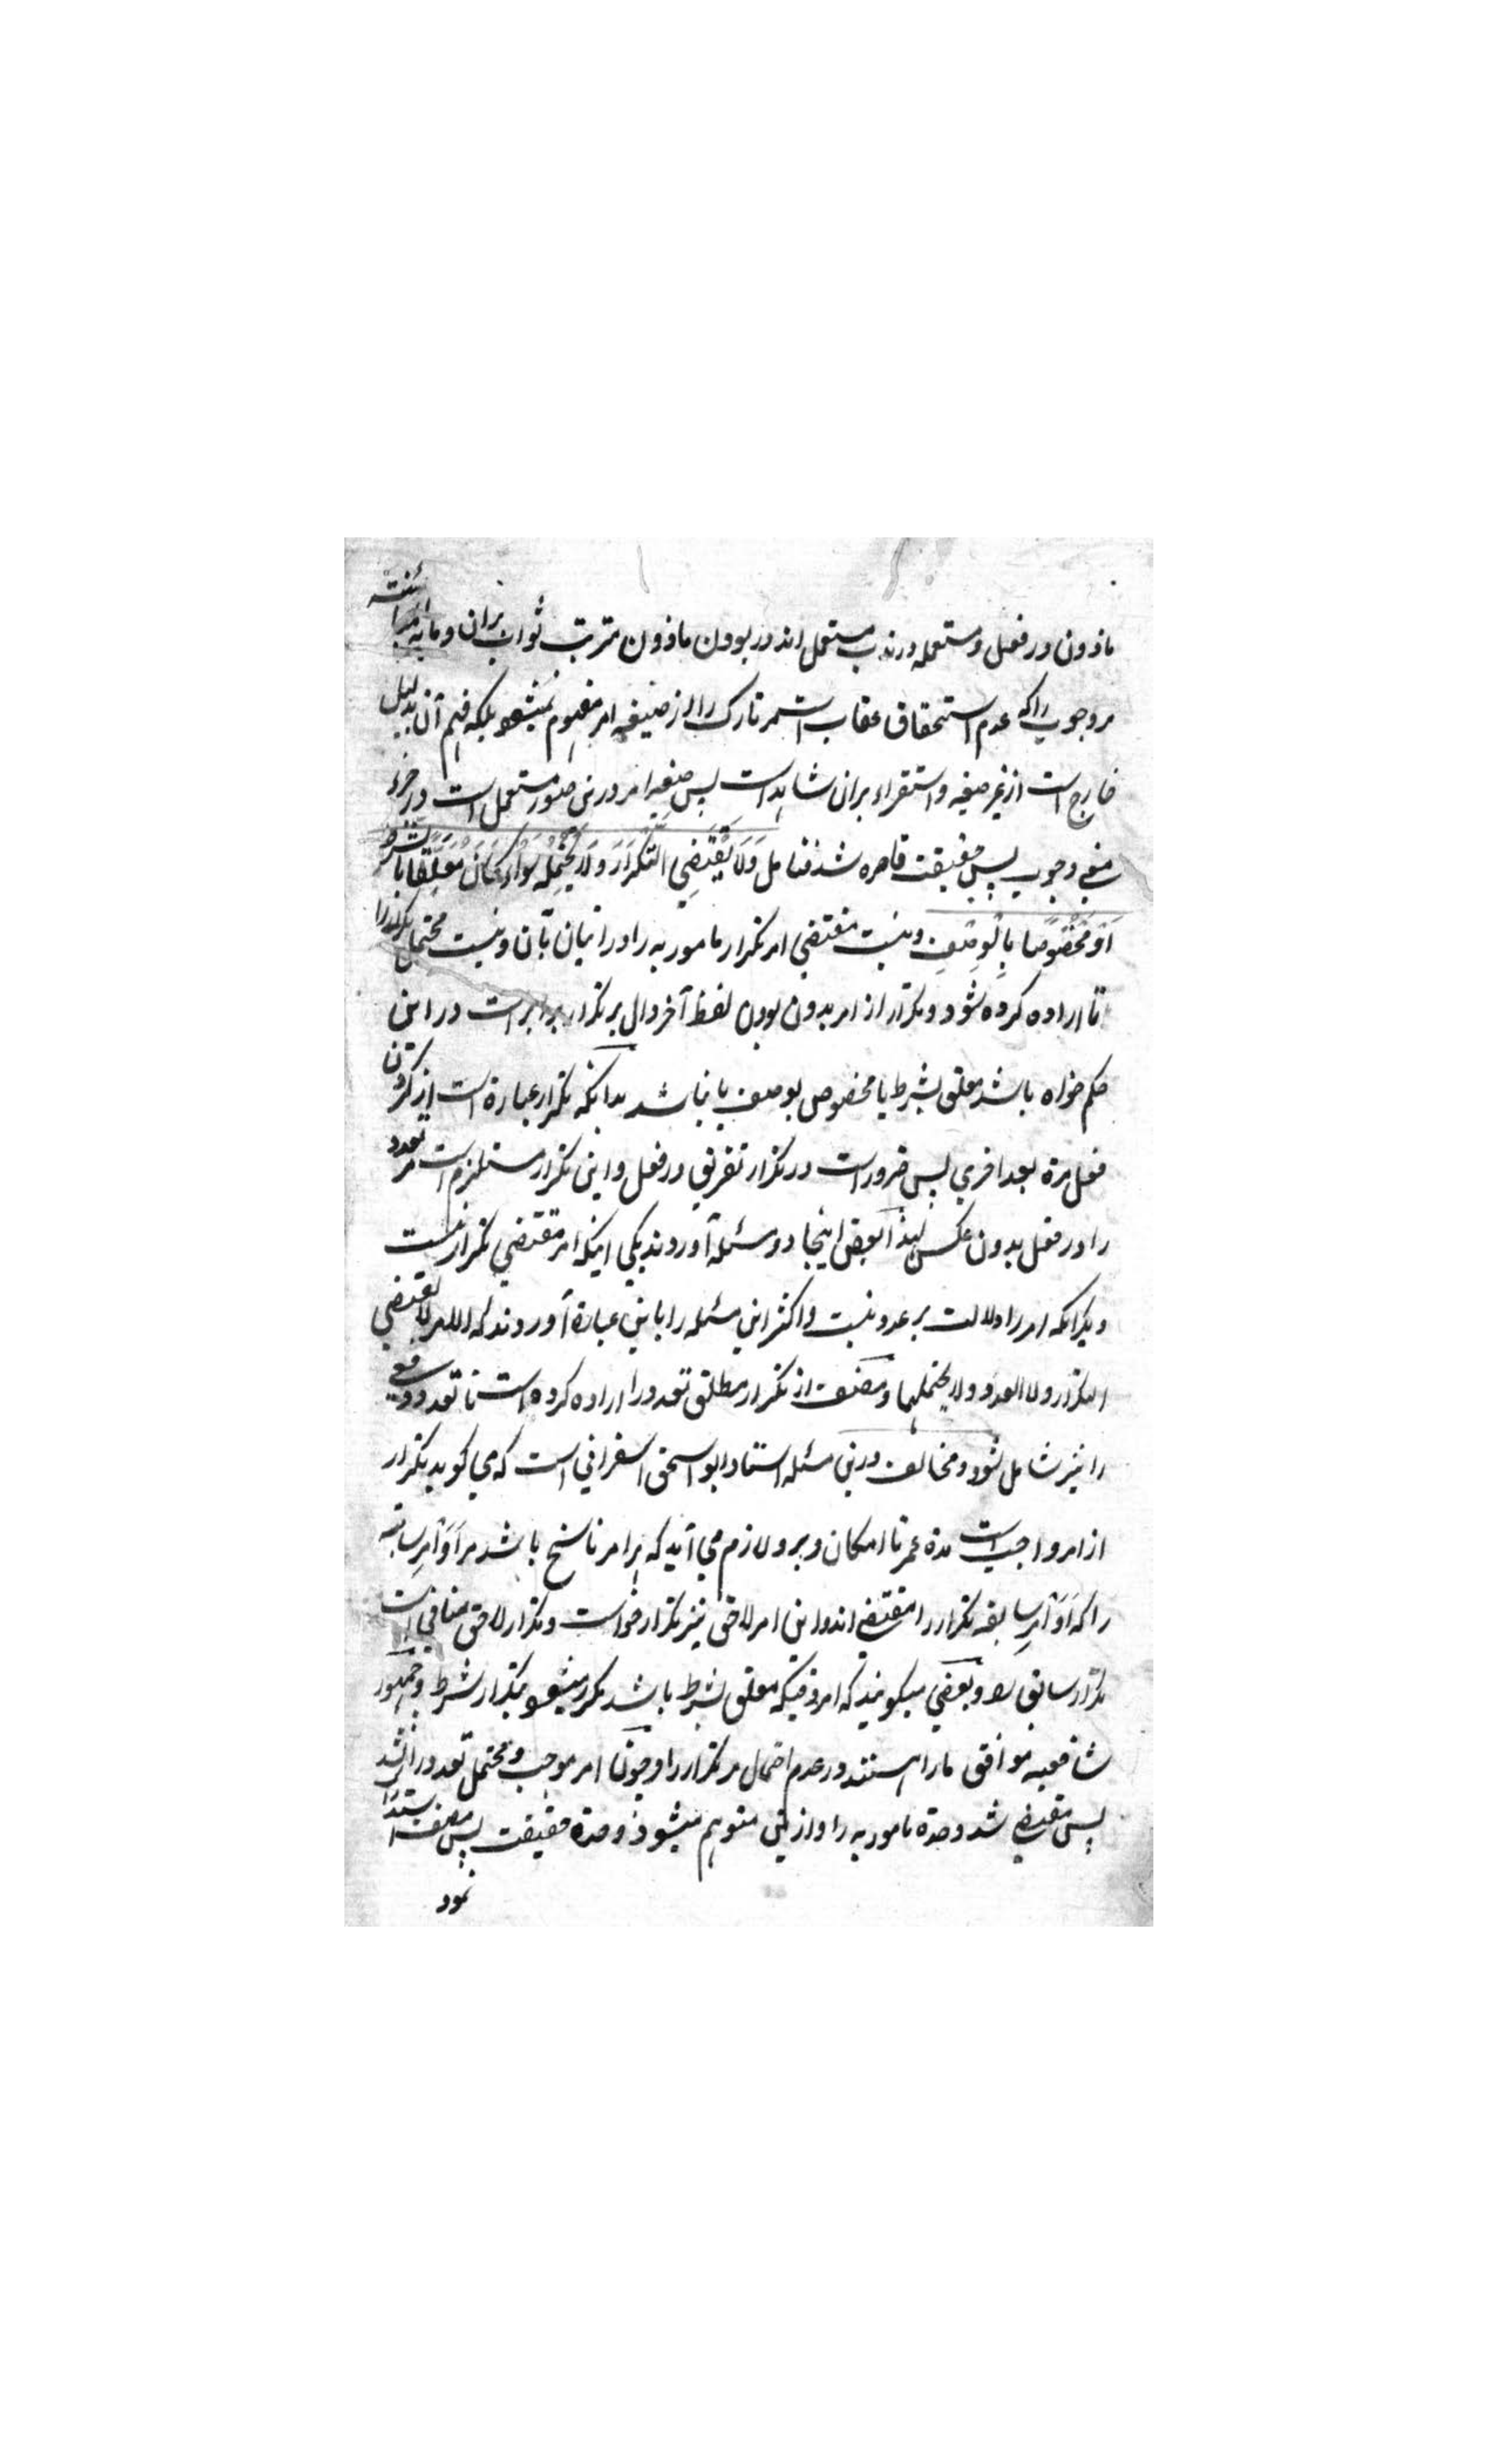 ماذون در فعل و مستعمله در ندب مستعمل اند در بودن ماذون مترتب ثواب بران و مابه
مر وجوب را که عدم استحقاق عقاب است مر تارک را از صیغه امر مفهوم نمیشود بلکه فهم آن بدلیل
خارج است از غیر صیغه و استقراء بران شاهد است پس صیغه امر درین صور مستعمل است در جزء
معنی وجوب پس حقیقت قاصره شد فتامل وَلَا یَقْتَضِي التَّکْرَارَ وَلَا یَحْتَمِلُهُ سَوَاءٌ کَانَ مُعَلَّقًا بالشرط
اَوْ مَخْصُوصًا بِالْوَصْفِ و نیست مقتضي امر تکرار مامور به را در اتیان بآن و نیست محتمل تکرار را
تا اراده کرده شود و تکرار از امر بدون بودن لفظ آخر دال بر تکرار برابر است در این
حکم خواه باشد معلق بشرط یا مخصوص بوصف یا نباشد بدانکه تکرار عبارة است از کردن
فعل مرة بعد اخري پس ضرور است در تکرار تفریق در فعل و این تکرار مستلزم است مر تعدد
را در فعل بدون عکس لهذا بعض اینجا دو مسئله آوردند یکي اینکه امر مقتضي تکرار نیست
دیگر آنکه امر را دلالت بر عدد نیست و اکثر این مسئله را باین عبارة آوردند که الامر لا یقتضي
التکرار ولا العدد ولا یحتملهما و مصنف از تکرار مطلق تعدد را اراده کرده است تا تعدد دفعي
را نیز شامل شود و مخالف درین مسئله استاد ابو اسحق اسفرائني است که مي کوید تکرار
از امر واجب است مدة عمر تا امکان و برو لازم مي آید که هر امر ناسخ باشد مر اَوَامِر سابقه
را که اَوَامِر سابقه تکرار را مقتضي اند و این امر لاحق نیز تکرار خواست و تکرار لاحق منافي است
تکرار سابق را و بعضي میکویند که امر وقتیکه معلق بشرط باشد مکرر میشود بتکرار شرط و جمهور
شافعیه موافق ما را هستند در عدم احتمال مر تکرار را و چون امر موجب و محتمل تعدد را نشد
پس مقتضي شد وحدة مامور به را و ازین متوهم میشود وحدة حقیقت پس مصنف استدراک
نمود